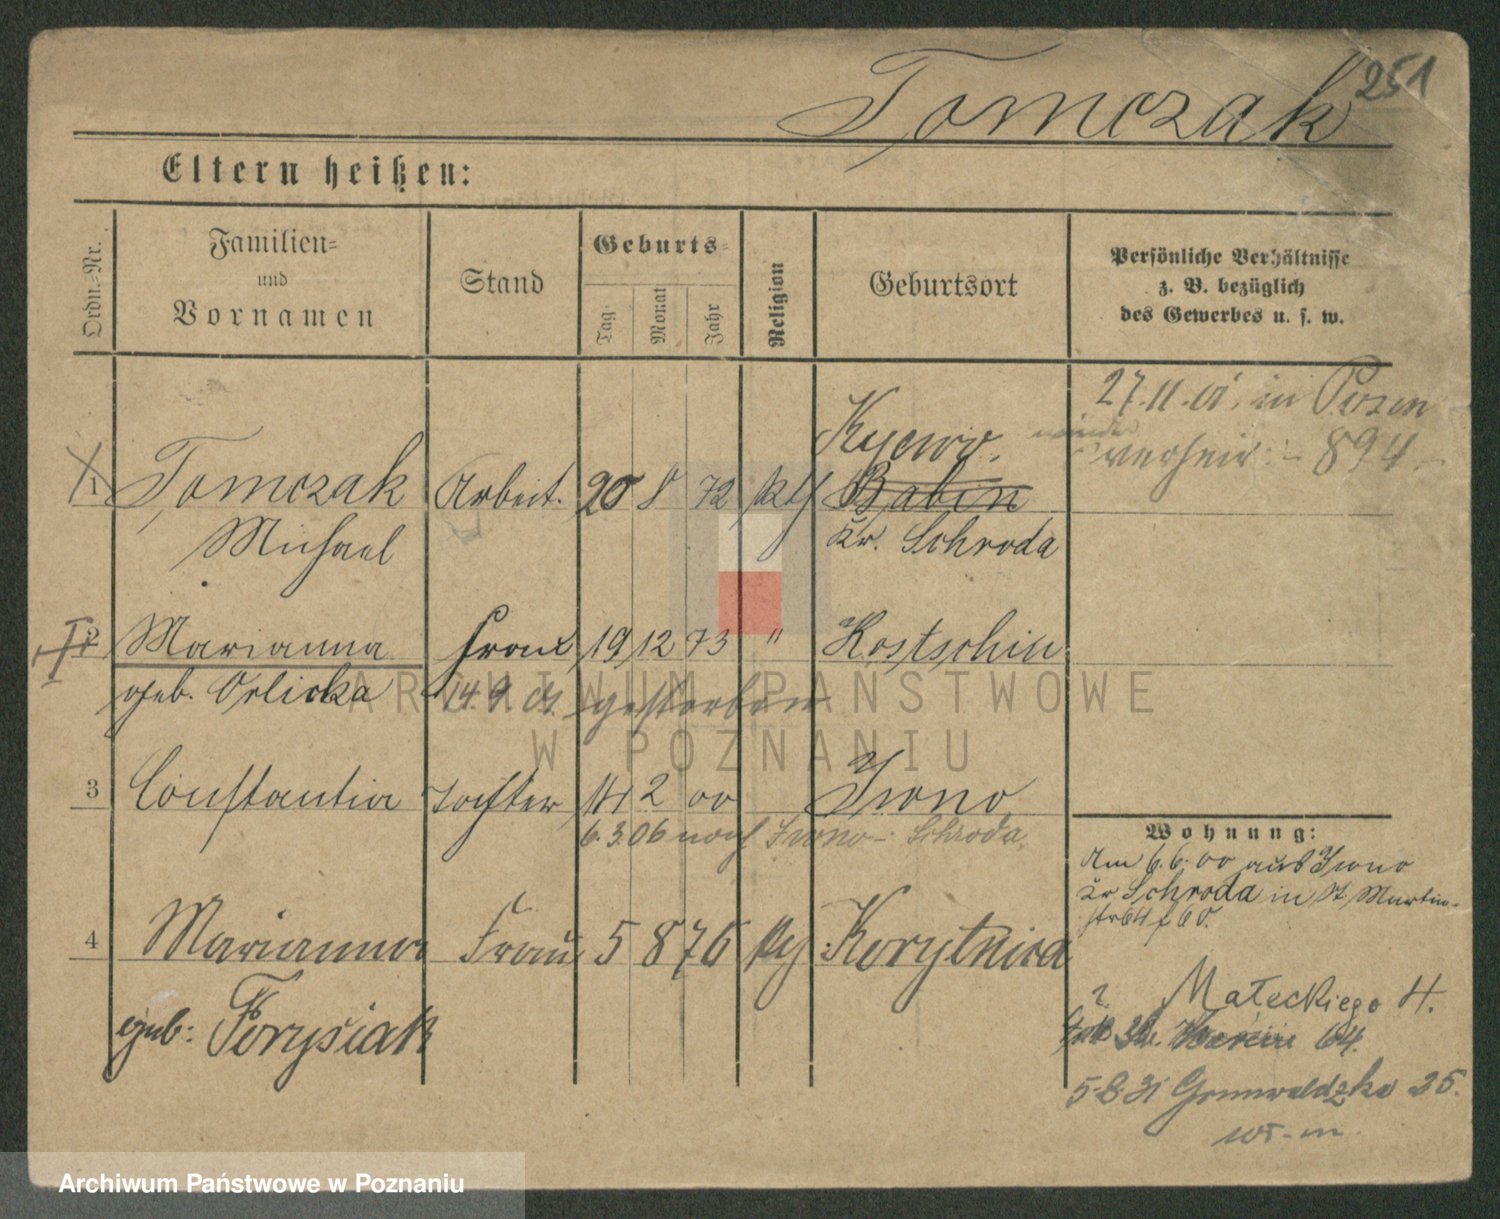 251
Tomczak
Eltern heißen:
Ordn.-Nr.
Familien-
und
Vornamen
Stand
Geburts-
Tag
Monat
Jahr
Religion
Geburtsort
Persönliche Verhältnisse
z. B. bezüglich
des Gewerbes u. s. w.
27.11.01. in Posen
verheir. - 894 -
Kijewo.
1 Tomczak Arbeit. 20 8 72 kth Babin
Michael Kr. Schroda
2 Marianna Frau 19 12 73 " Kostschin
geb. Orlicka 14.9.01. gestorben
3 Constantia Tochter 14 2 00 Iwno
6.3.06 nach Iwno - Schroda
Wohnung:
Am 6.6.00 aus Iwno
Kr Schroda in St. Martin-
str 64
4 Marianna Frau 5 8 76 Korytnica
geb: Forysiak
Małeckiego
64.
5.8.31 Grunwaldzka 25.
ARCHIWUM PAŃSTWOWE
W POZNANIU
Archiwum Państwowe w Poznaniu